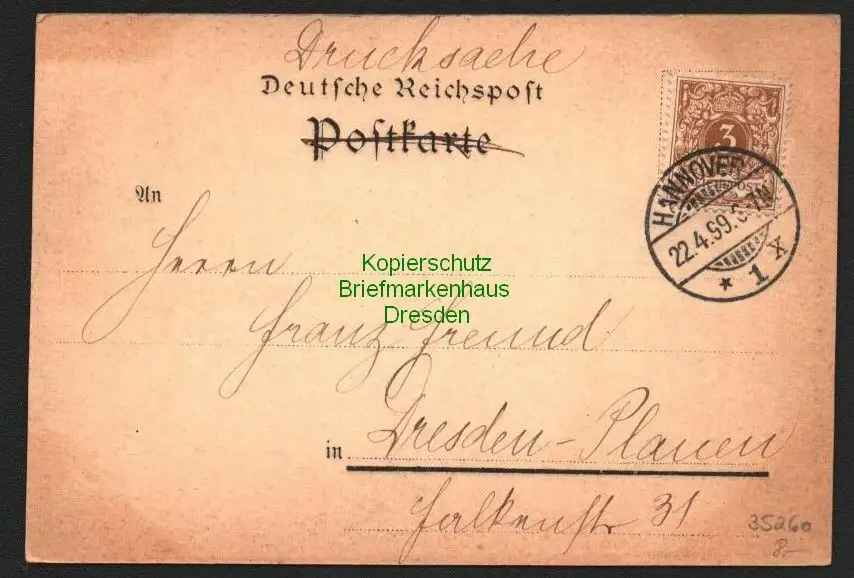 Drucksache
Deutsche Reichspost
Postkarte
3
HANNOVER
22.4.99.
* 1 X
An
Herrn
Kopierschutz
Briefmarkenhaus
Dresden
Franz Freund
in Dresden-Plauen
Falkenstr 31
35260
8.-